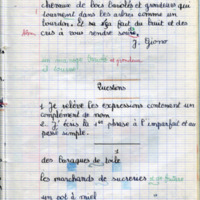 chevaux de bois bariolés et grondeurs qui
tournent dans les arbres comme un
bourdon. Il se fait du bruit et des
cris à vous rendre sourd.
J. Giono
Questions
1 Je relève les expressions contenant un
complément de nom
2 J'écris la 1ère phrase à l'imparfait et au
passé simple.
1
des baraques de toile
les marchands de sucreries
un pot à miel "